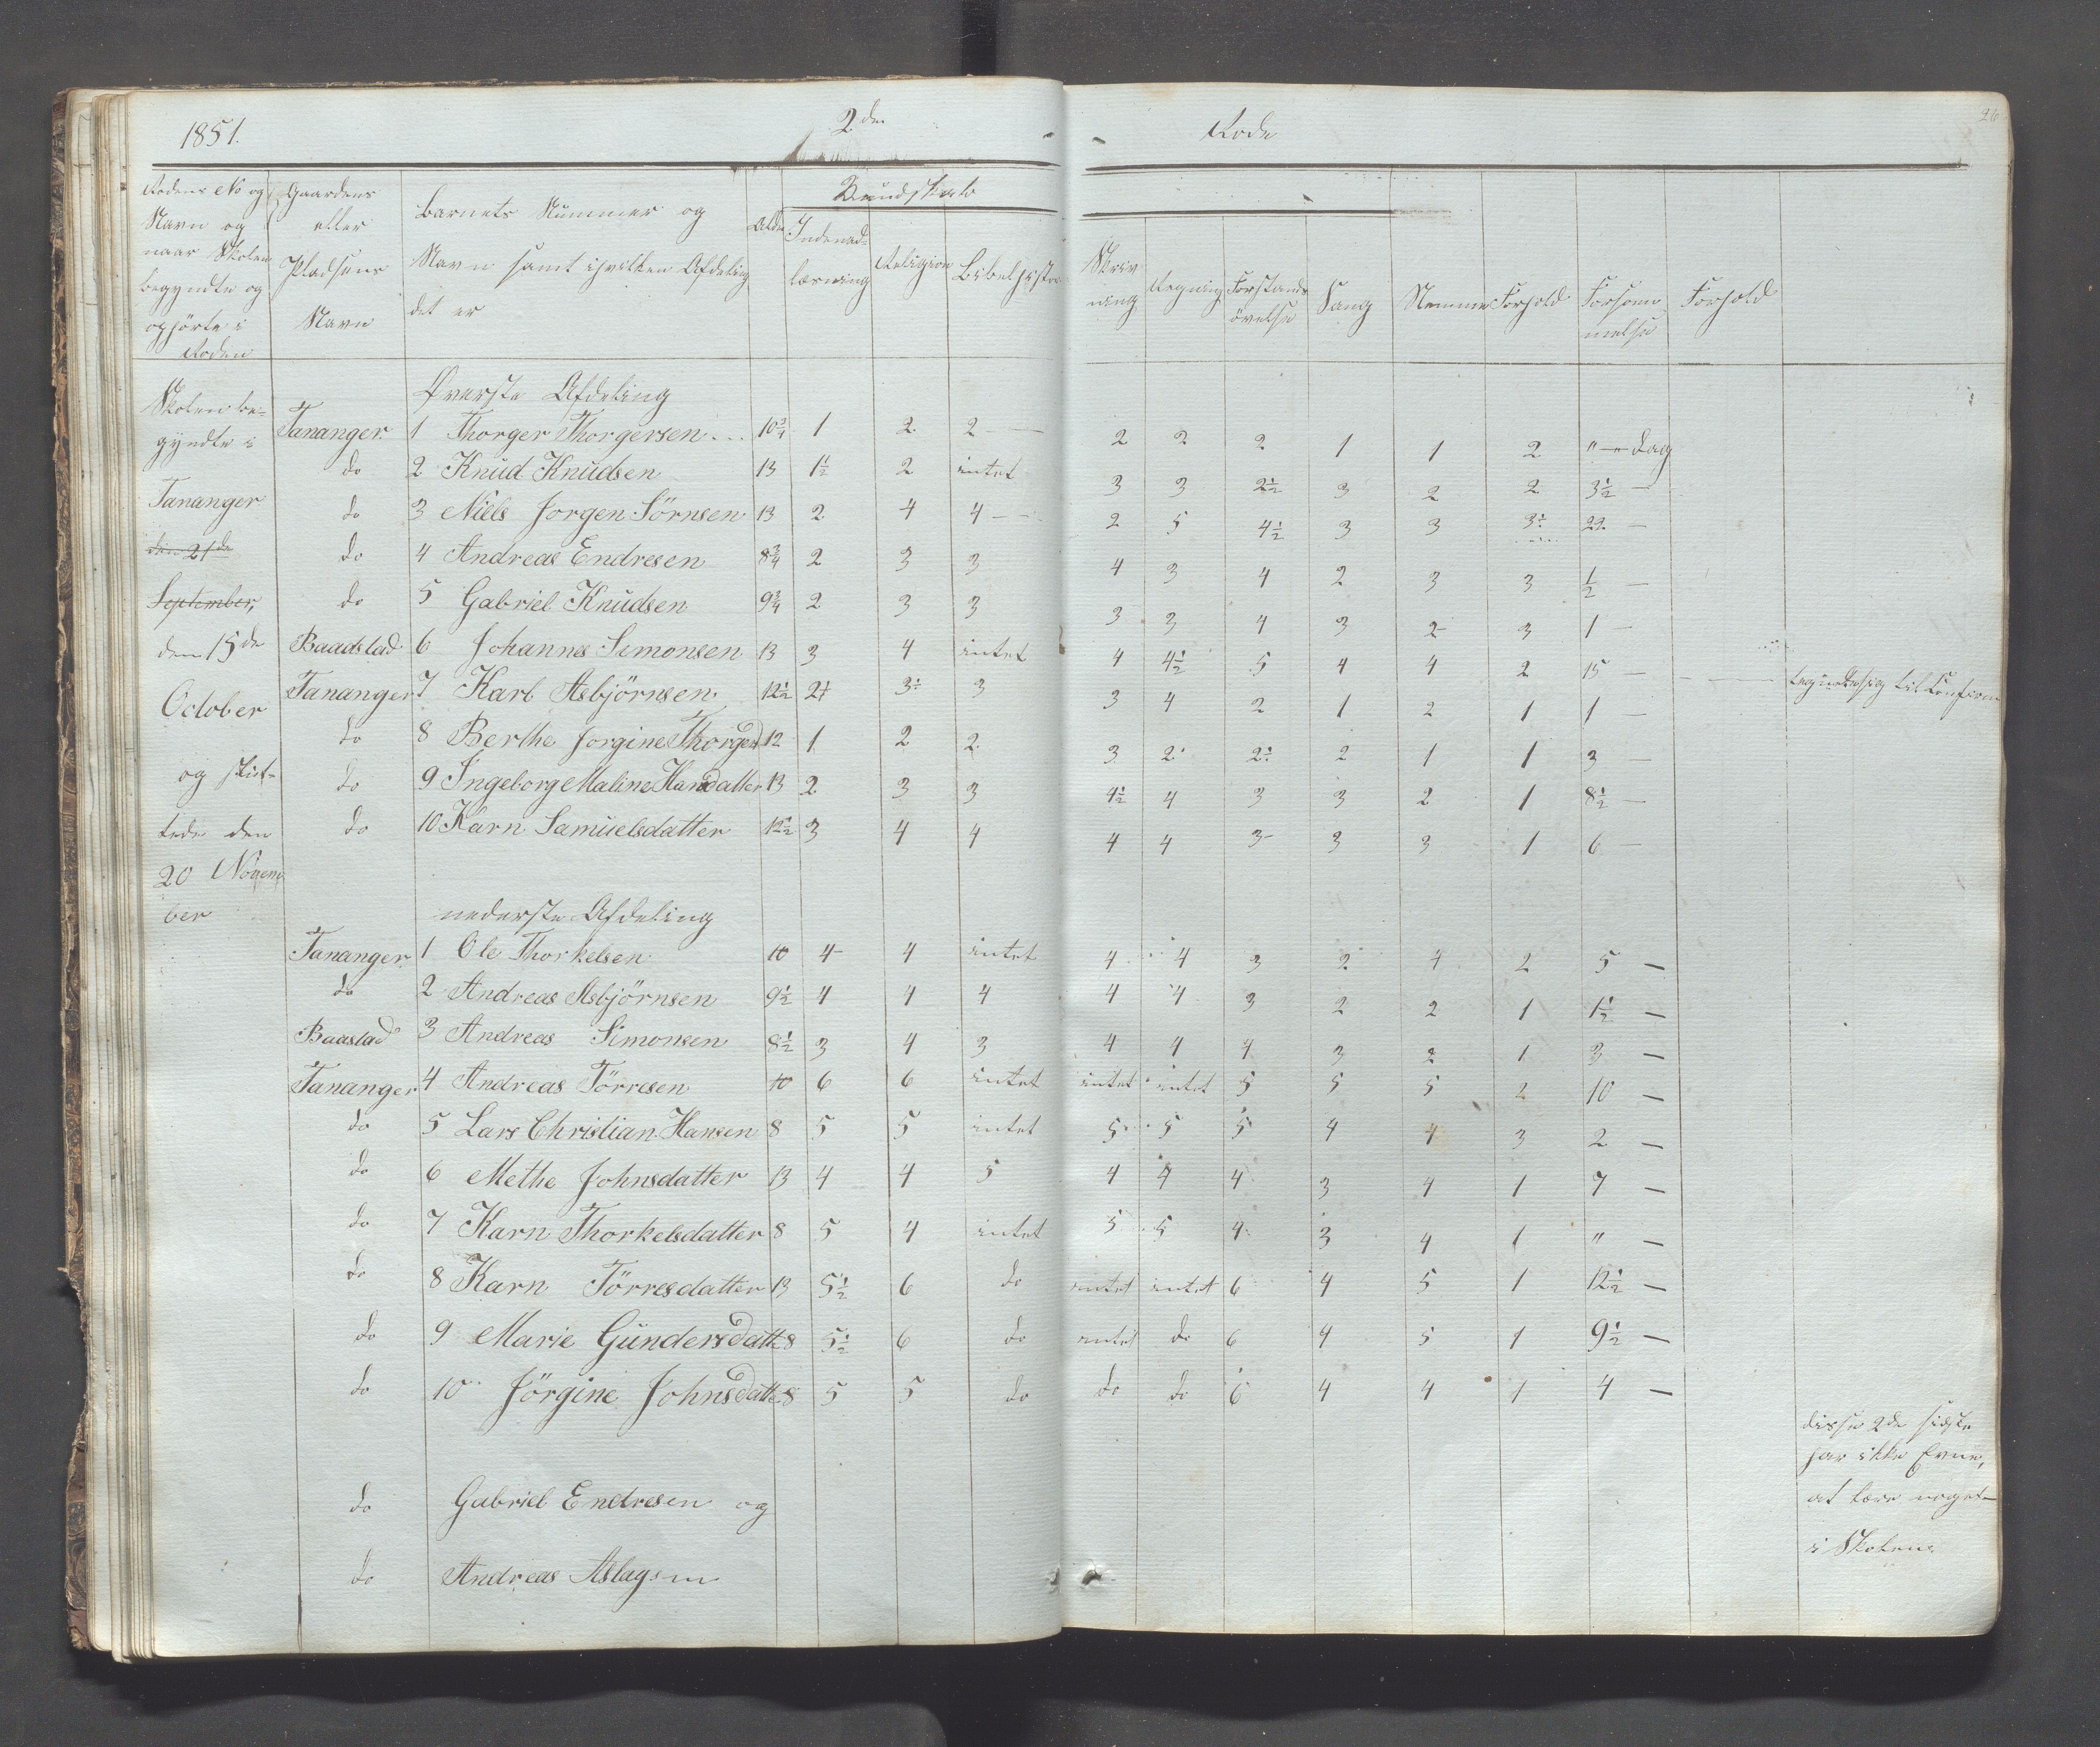 1851. 2den Rode 26
Rodens No og Navn og naar Skolen begyndte og ophörte i Roden | Gaardens eller Pladsens Navn | Barnets Nummer og Navn samt i hvilken Afdeling det er | Alder | Kundskab
Indenadlæsning | Religion | Bibelhistor | Skrivning | Regning | Forstands övelse | Sang | Nemme | Forhold | Forsömmelse | Forhold
Skolen be- Øverste Afdeling
gyndte i Tananger 1 Thorger Thorgersen 10 3/4 1 2 2 2 2 2 1 1 2 " — Dag
do 2 Knud Knudsen 13 1 1/2 2 intet 3 3 2 1/2 3 2 2 3 1/2 —
Tananger do 3 Niels Jorgen Sörnsen 13 2 4 4 2 5 4 1/2 3 3 3 1/2 22 —
den 21de do 4 Andreas Endresen 8 3/4 2 3 3 4 3 4 2 3 3 1/2 —
September, do 5 Gabriel Knudsen 9 3/4 2 3 3 3 3 4 3 2 3 1 —
den 15de Baadstad 6 Johannes Simonsen 13 3 4 intet 4 4 1/2 5 4 4 2 15 —
October Tananger 7 Karl Asbjörnsen 12 1/2 2 1/2 3 1/2 3 3 4 2 1 2 1 1 —
do 8 Berthe Jorgine Thorgerd 12 1 2 2 3 2 2 1/2 2 1 1 3 —
og slut- do 9 Ingeborg Maline Hansdatter 13 2 3 3 4 1/2 4 3 3 2 1 8 1/2 —
tede den do 10 Karn Samuelsdatter 12 1/2 3 4 4 4 4 3 3 3 1 6 —
20 Novem
ber nederste Afdeling
Tananger 1 Ole Thorkelsen 10 4 4 intet 4 4 3 2 4 2 5 —
do 2 Andreas Asbjörnsen 9 1/2 4 4 4 4 4 3 2 2 1 1 1/2 —
Baastad 3 Andreas Simonsen 8 1/2 3 4 3 4 4 4 3 2 1 3 —
Tananger 4 Andreas Törresen 10 6 6 intet intet intet 5 5 5 2 10 —
do 5 Lars Christian Hansen 8 5 5 intet 5 5 5 4 4 3 2 —
do 6 Methe Johnsdatter 13 4 4 5 4 4 4 3 4 1 7 —
do 7 Karn Thorkelsdatter 8 5 4 intet 5 5 4 3 4 1 " —
do 8 Karn Törresdatter 13 5 1/2 6 do intet intet 6 4 5 1 12 1/2 —
do 9 Marie Gundersdatte 8 5 1/2 6 do intet do 6 4 5 1 9 1/2 —
do 10 Jörgine Johnsdatte 8 5 5 do do do 6 4 4 1 4 —
do Gabriel Endresen og
do Andreas Aslagsen
disse 2de sidste
har ikke Evne,
at lære noget
i Skolen